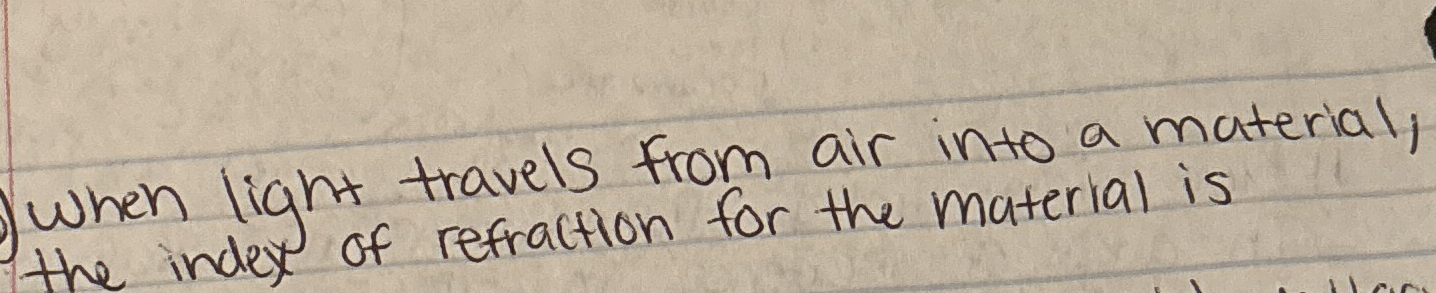 When light travels from air into a material,
the index of refraction for the material is